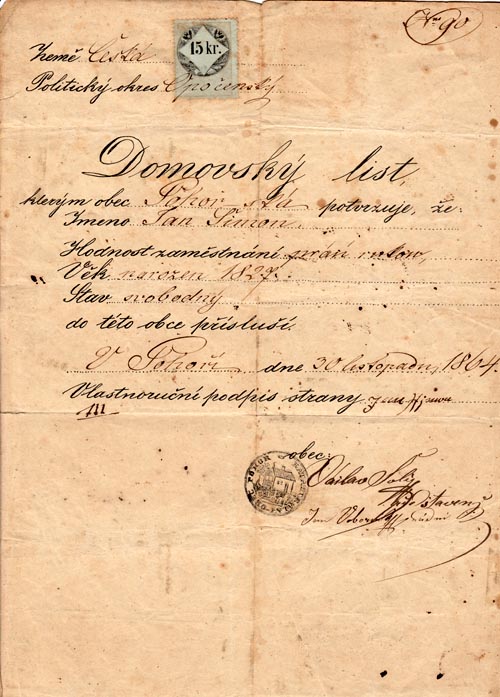 No 90
15 kr.
Země Česká
Politický okres Opočenský
Domovský list,
kterým obec Pohor potvrzuje, že:
Jmeno Jan Šimon,
Hodnost zaměstnání
Věk narozen 1827.
Stav svobodný
do této obce přísluší.
V Pohoří dne 30 listopadu 1864.
Vlastnoruční podpis strany
obec:
Václav
Představený
Jan
POHOR